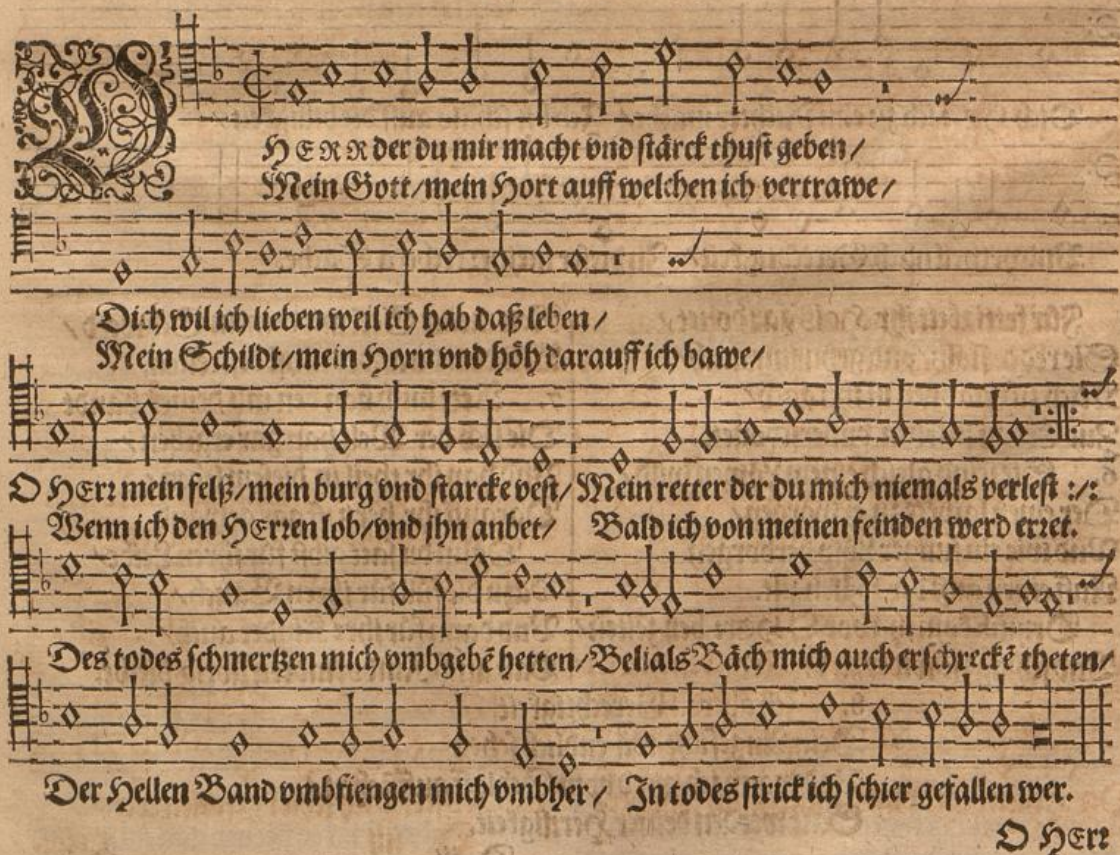 O
HERR der du mir macht vnd stärck thust geben/
Mein Gott/mein Hort auff welchen ich vertrawe/
Dich wil ich lieben weil ich hab daß leben/
Mein Schildt/mein Horn vnd höh darauff ich bawe/
O HErr mein felß/mein burg vnd starcke vest/ Mein retter der du mich niemals verlest :/:
Wenn ich den HErren lob/vnd jhn anbet/ Bald ich von meinen feinden werd erret.
Des todes schmertzen mich vmbgebẽ hetten/Belials Bäch mich auch erschreckẽ theten/
Der Hellen Band vmbfiengen mich vmbher/ In todes strick ich schier gefallen wer.
O HErr